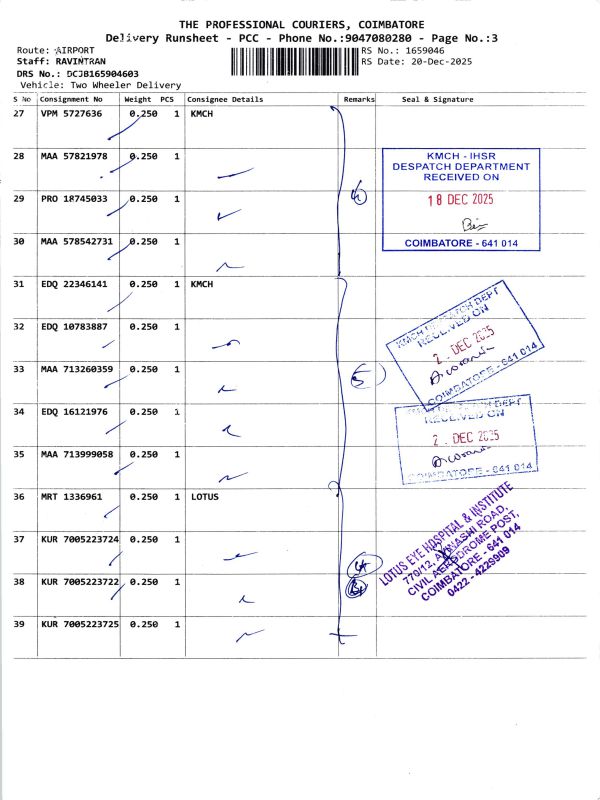 THE PROFESSIONAL COURIERS, COIMBATORE
Delivery Runsheet - PCC - Phone No.:9047080280 - Page No.:3
Route: AIRPORT
Staff: RAVINTRAN
DRS No.: DCJB165904603
Vehicle: Two Wheeler Delivery
RS No.: 1659046
RS Date: 20-Dec-2025
S No Consignment No Weight PCS Consignee Details Remarks Seal & Signature
27 VPM 5727636 0.250 1 KMCH
28 MAA 57821978 0.250 1
29 PRO 18745033 0.250 1
30 MAA 578542731 0.250 1
KMCH - IHSR
DESPATCH DEPARTMENT
RECEIVED ON
18 DEC 2025
COIMBATORE - 641 014
31 EDQ 22346141 0.250 1 KMCH
32 EDQ 10783887 0.250 1
33 MAA 713260359 0.250 1
34 EDQ 16121976 0.250 1
35 MAA 713999058 0.250 1
5
KMCH DESPATCH DEPT
RECEIVED ON
2 DEC 2025
COIMBATORE - 641 014
KMCH DESPATCH DEPT
RECEIVED ON
2 DEC 2025
COIMBATORE - 641 014
36 MRT 1336961 0.250 1 LOTUS
37 KUR 7005223724 0.250 1
38 KUR 7005223722 0.250 1
39 KUR 7005223725 0.250 1
LOTUS EYE HOSPITAL & INSTITUTE
770/12, AVINASHI ROAD,
CIVIL AERODROME POST,
COIMBATORE - 641 014
0422 - 4229909